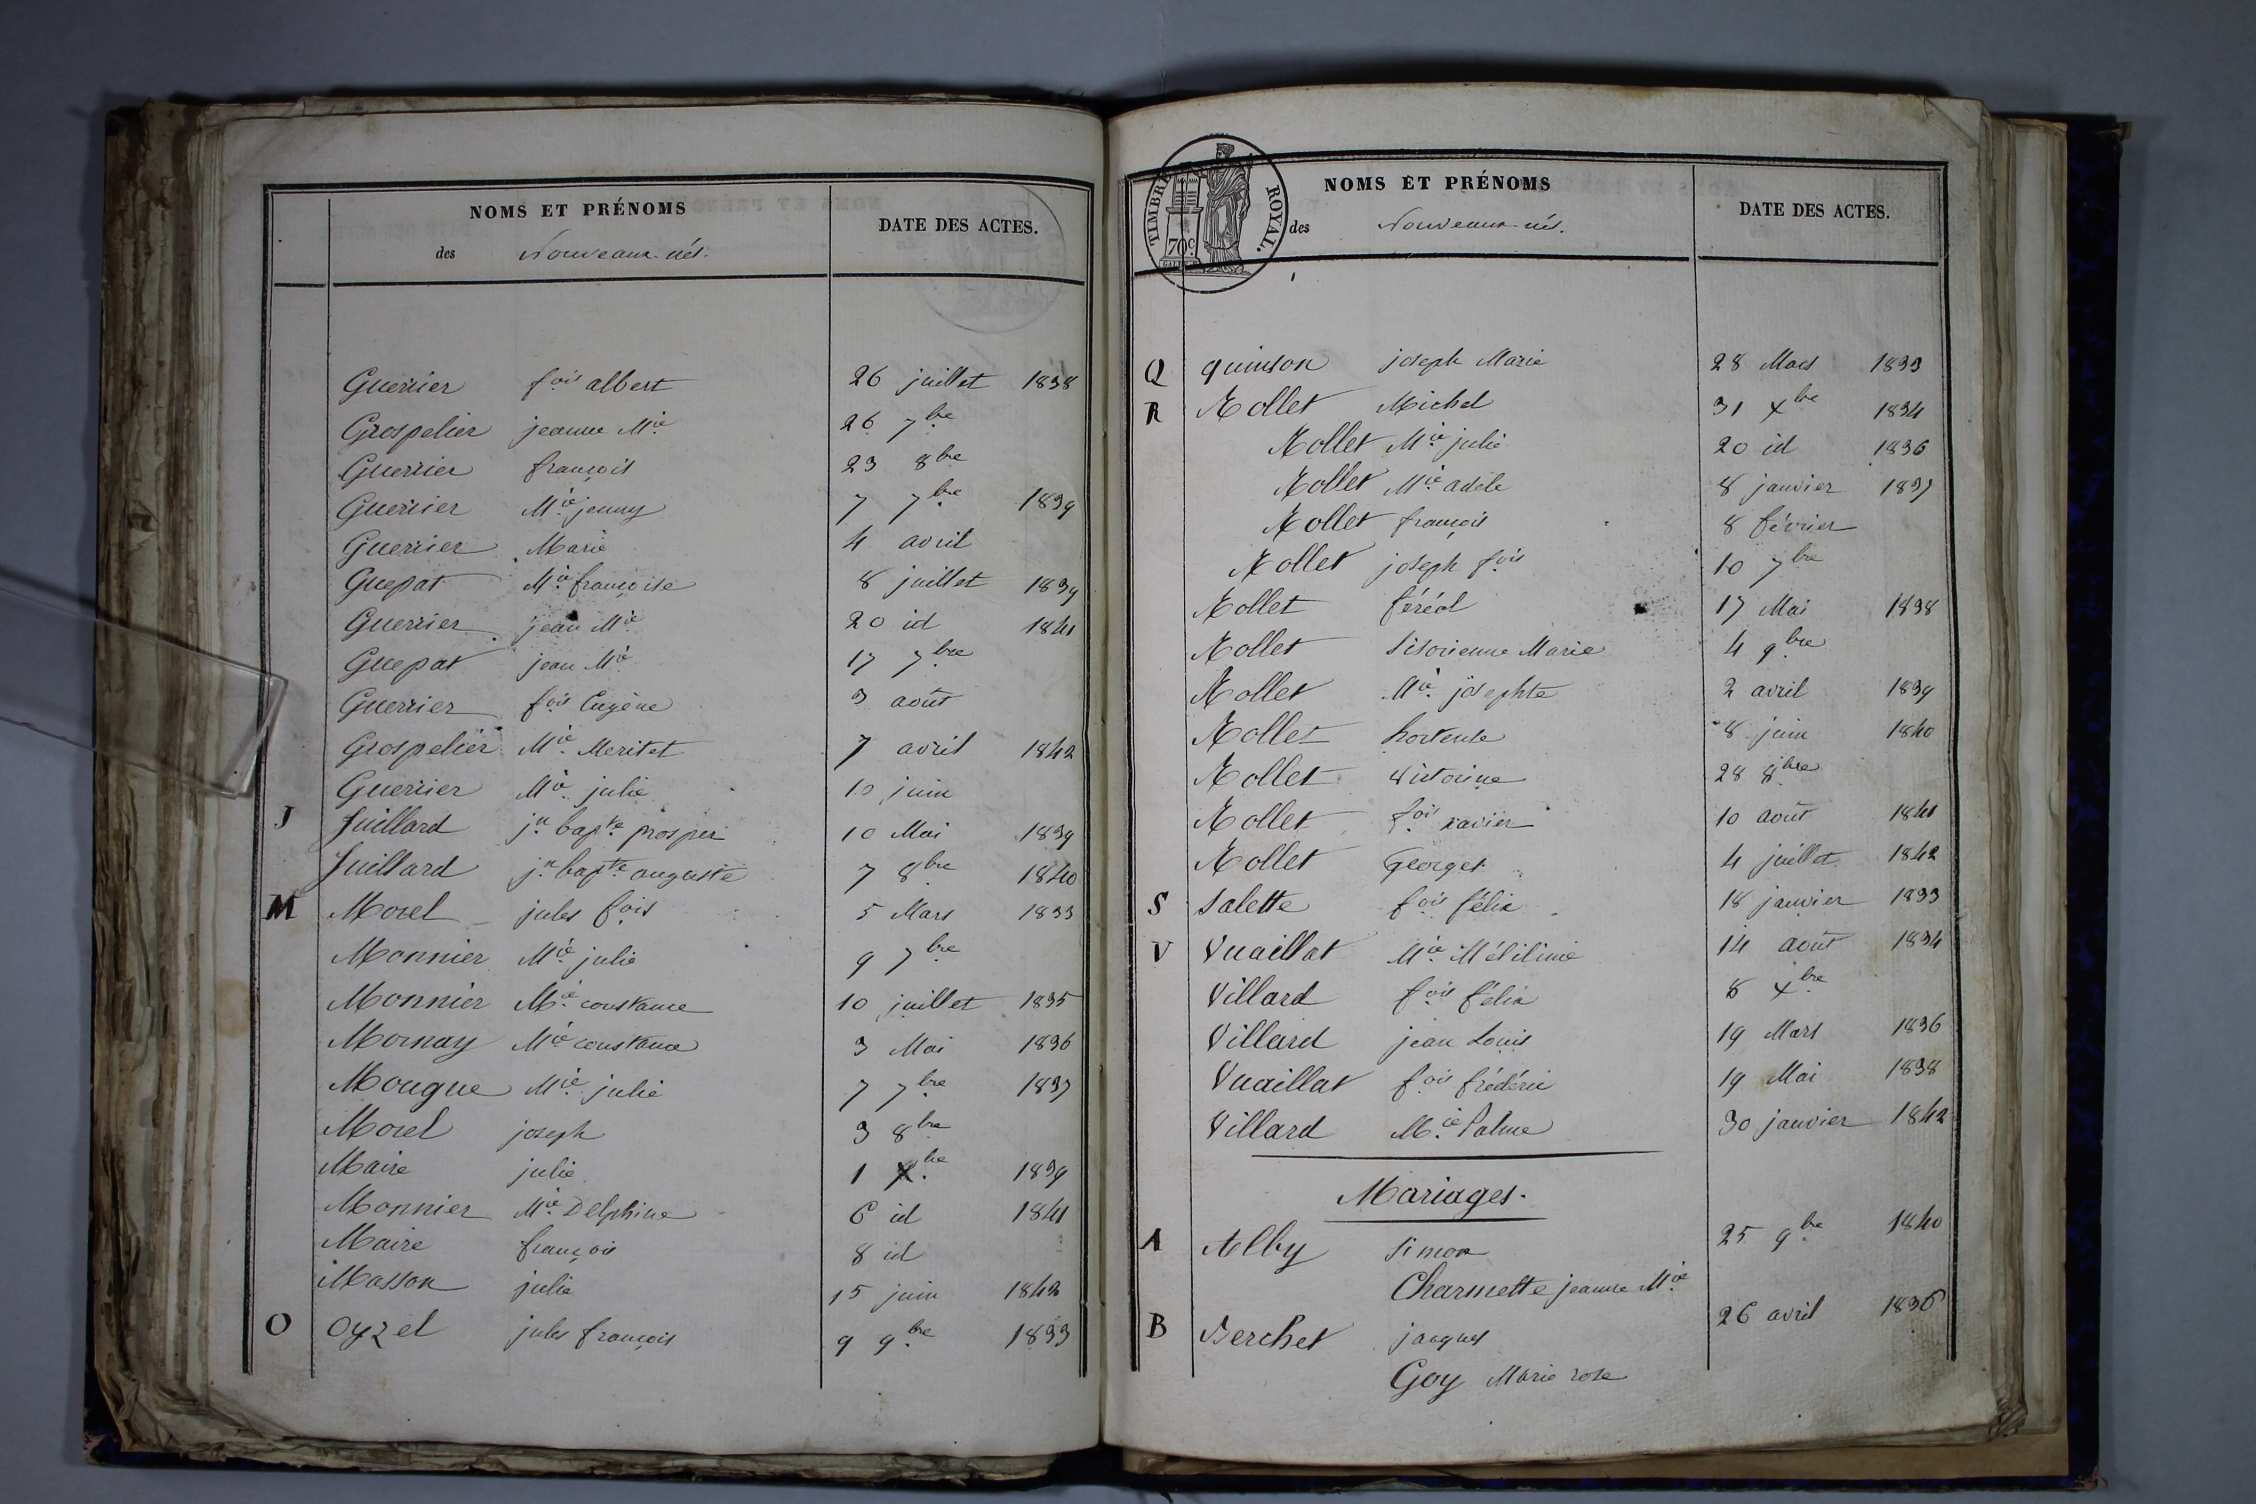 NOMS ET PRÉNOMS
des Nouveaux-nés.
DATE DES ACTES.
Guerrier fois albert 26 juillet 1838
Grospelier jeanne Mie 26 7bre
Guerrier françois 23 8bre
Guerrier Mie jenny 7 7bre 1839
Guerrier Marie 4 avril
Guepat Mie françoise 8 juillet 1839
Guerrier jean Mie 20 id 1841
Guepat jean Mie 17 7bre
Guerrier fois Eugène 3 août
Grospelier Mie Meritet 7 avril 1842
Guerrier Mie julie 10 juin
J Juillard jn bapte prosper 10 Mai 1839
Juillard jn bapte auguste 7 8bre 1840
M Morel jules fois 5 Mars 1833
Monnier Mie julie 9 7bre
Monnier Mie constance 10 juillet 1835
Mornay Mie constance 3 Mai 1836
Mougue Mie julie 7 7bre 1837
Morel joseph 3 8bre
Maire julie 1 xbre 1839
Monnier Mie Delphine 6 id 1841
Maire françois 8 id
Masson julie 15 juin 1842
O Oyzel jules françois 9 9bre 1833
TIMBRE ROYAL.
70c
NOMS ET PRÉNOMS
des Nouveaux-nés.
DATE DES ACTES.
Q quinson joseph Marie 28 Mars 1833
R Rollet Michel 31 xbre 1834
Rollet Mie julie 20 id 1836
Rollet Mie adèle 8 janvier 1837
Rollet françois 8 février
Rollet joseph fois 10 7bre
Rollet féréol 17 Mai 1838
Rollet Marie 4 9bre
Rollet Mie josephte 2 avril 1839
Rollet hortense 8 juin 1840
Rollet Victorine 28 8bre
Rollet fois xavier 10 août 1841
Rollet Georges 4 juillet 1842
S Salette fois félix 18 janvier 1833
V Vuaillat Mie 14 août 1834
Villard fois félix 8 xbre
Villard jean Louis 19 Mars 1836
Vuaillat fois frédéric 19 Mai 1838
Villard Mie Palme 30 janvier 1842
Mariages.
A Alby Simon 25 9bre 1840
Charmette jeanne Mie
B Berchet jacques 26 avril 1836
Goy Marie rose